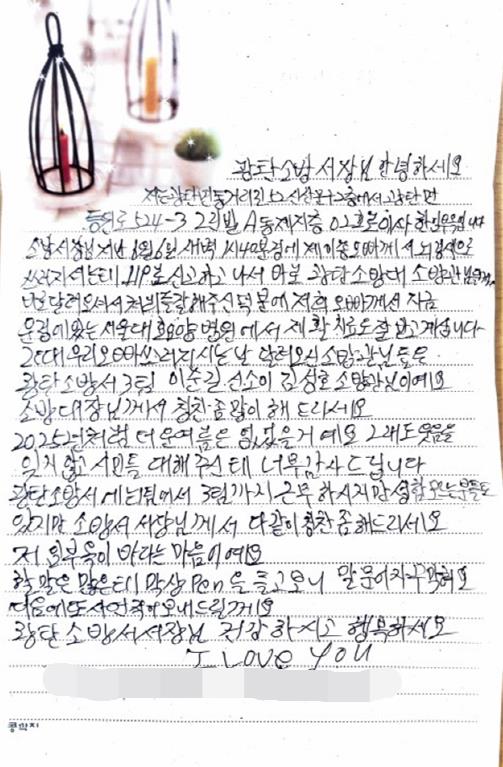 광탄소방서장님 안녕하세요
저는 광탄면 동거리
등원로 524-3 2리빌 A동 제지층 02호로 이사
소방서장님 지난 새벽 1시40분경에 제 오빠께서 뇌경색으로
쓰러지셔는데 119로 신고하고 나서 바로 광탄소방대 소방관님
달려오셔서 처치를 잘해주신 덕분에 저희 오빠께서 지금
운정에 있는 서울대효요양병원에서 재활치료도 잘 받고 계십니다
그런데 우리오빠 쓰러지시는 날 달려오신 소방관님들은
광탄소방서 3팀 이순길 선소이 김성호 소방관님이에요
소방대장님께서 칭찬 좀 많이 해 드리세요
2025년처럼 더운여름은 없었을거예요 그래도 웃음을
잊지않고 시민들 대해주신테 너무 감사드립니다
광탄소방서에 팀에서 3팀까지 근무하시지만 성함 모르는분들도
있지만 소방서 서장님께서 다같이 칭찬 좀 해드리세요
저 의 바라는 마음이예요
할 말은 많은데 막상 Pen을 들고보니 말문이
다음에 또 사연 적어 보내드릴께요
광탄소방서서장님 건강하시고 행복하세요
I LOVE YOU